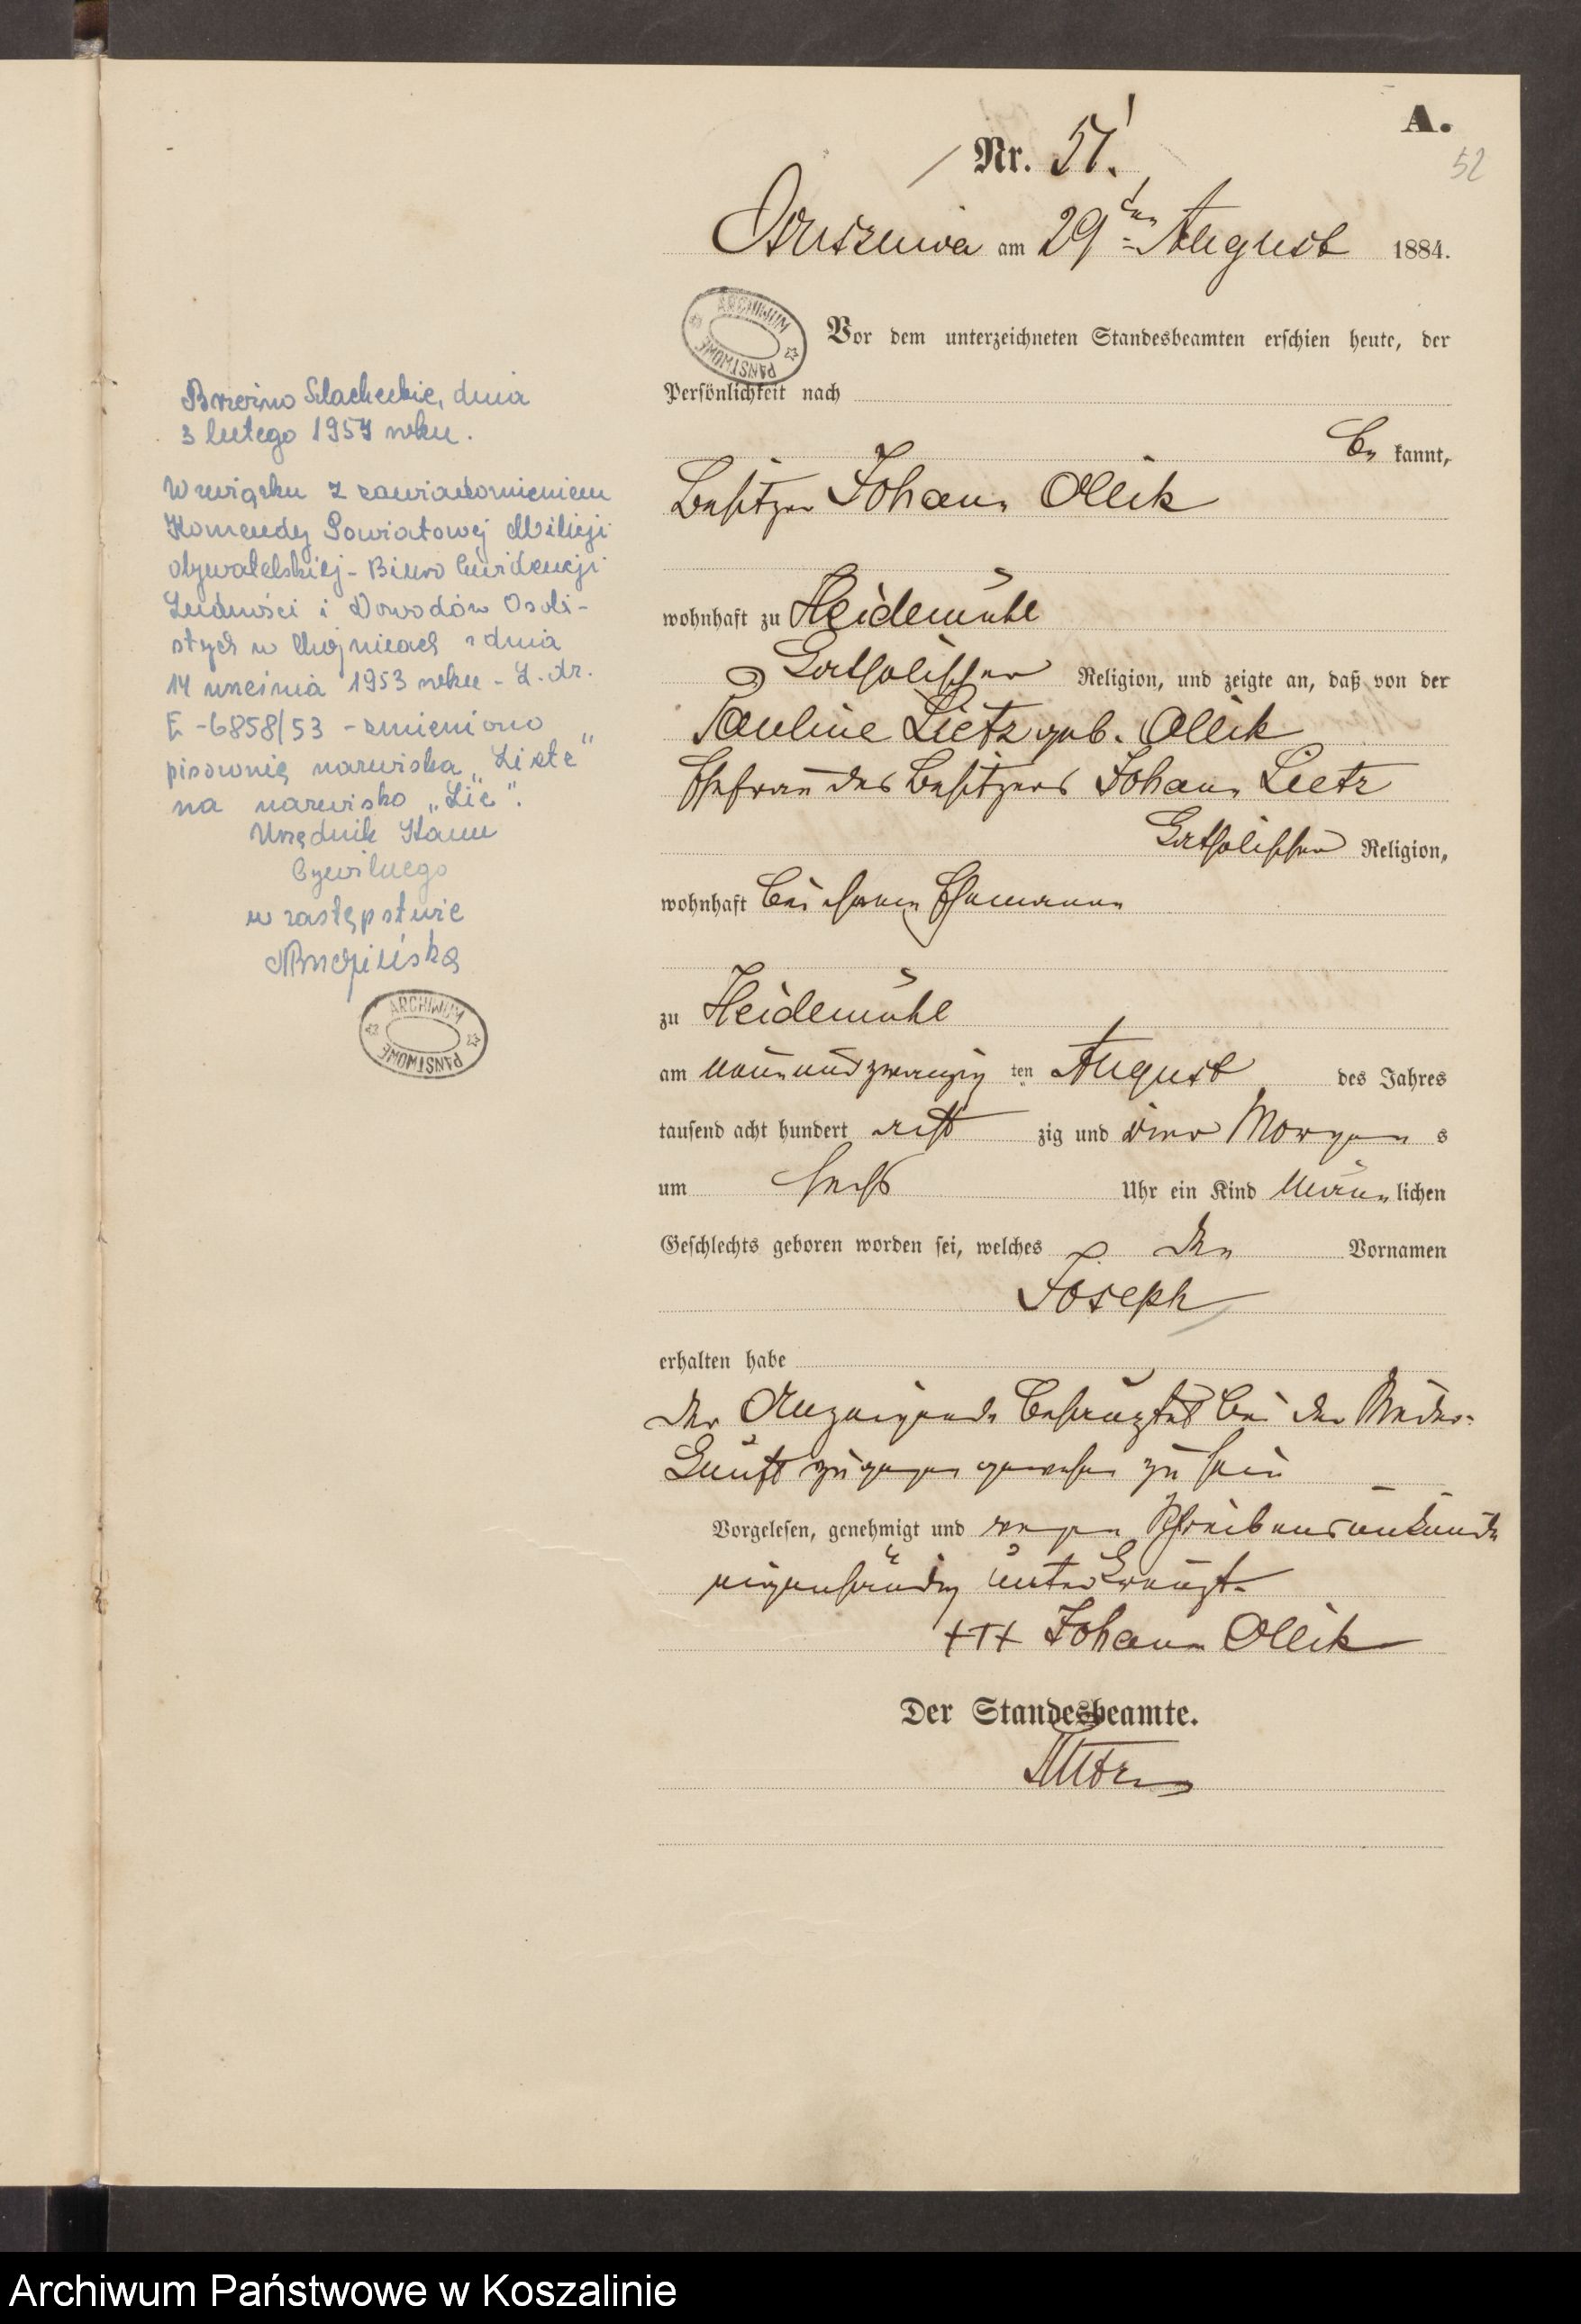 A.
52
Nr. 51.
Ossusznica am 29ten August 1884.
ARCHIWUM PAŃSTWOWE
Vor dem unterzeichneten Standesbeamten erschien heute, der
Persönlichkeit nach
be kannt,
Besitzer Johann Ollik
wohnhaft zu Heidemühl
katholischer Religion, und zeigte an, daß von der
Pauline Lietz geb. Ollik
Ehefrau des Besitzers Johann Lietz
katholischer Religion,
wohnhaft bei ihrem Ehemanne
zu Heidemühl
am neunundzwanzig ten August des Jahres
tausend acht hundert acht zig und vier Morgen s
um sechs Uhr ein Kind männ lichen
Geschlechts geboren worden sei, welches den Vornamen
Joseph
erhalten habe
der Anzeigende bekundet bei der Nieder-
kunft zugegen gewesen zu sein
Vorgelesen, genehmigt und wegen Schreibensunkunde
eigenhändig unterkreuzt.
+++ Johann Ollik
Der Standesbeamte.
Brzeźno Szlacheckie, dnia
3 lutego 1954 roku.
W związku z zawiadomieniem
Komendy Powiatowej Milicji
obywatelskiej - Biuro Ewidencji
Ludności i Dowodów Osobi-
stych w Chojnicach z dnia
14 września 1953 roku - L. dz.
E - 6858/53 - zmieniono
pisownię nazwiska „Lietz"
na nazwisko „Lic".
Urzędnik Stanu
Cywilnego
w zastępstwie
ARCHIWUM PAŃSTWOWE
Archiwum Państwowe w Koszalinie